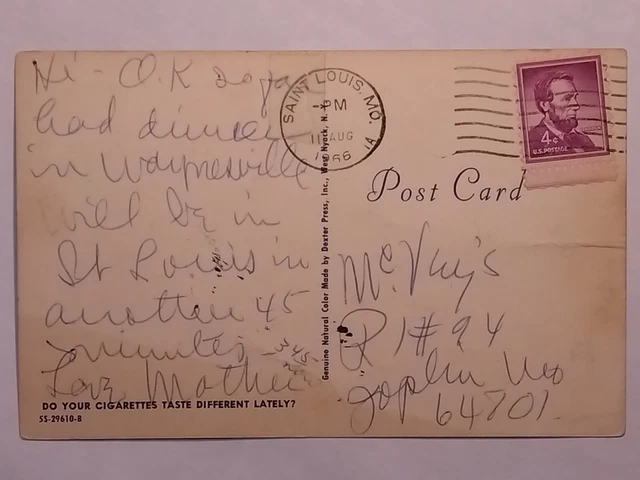 Hi - O.K so far
had dinner
in Waynesville
will be in
St Louis in
another 45
minutes - 345
Love Mother
DO YOUR CIGARETTES TASTE DIFFERENT LATELY?
SS-29610-B
Genuine Natural Color Made by Dexter Press, Inc., West Nyack, N.Y.
SAINT LOUIS, MO.
PM
11 AUG
1966
1A
4¢
U.S. POSTAGE
Post Card
McVey's
R 1 # 94
Joplin Mo
64801